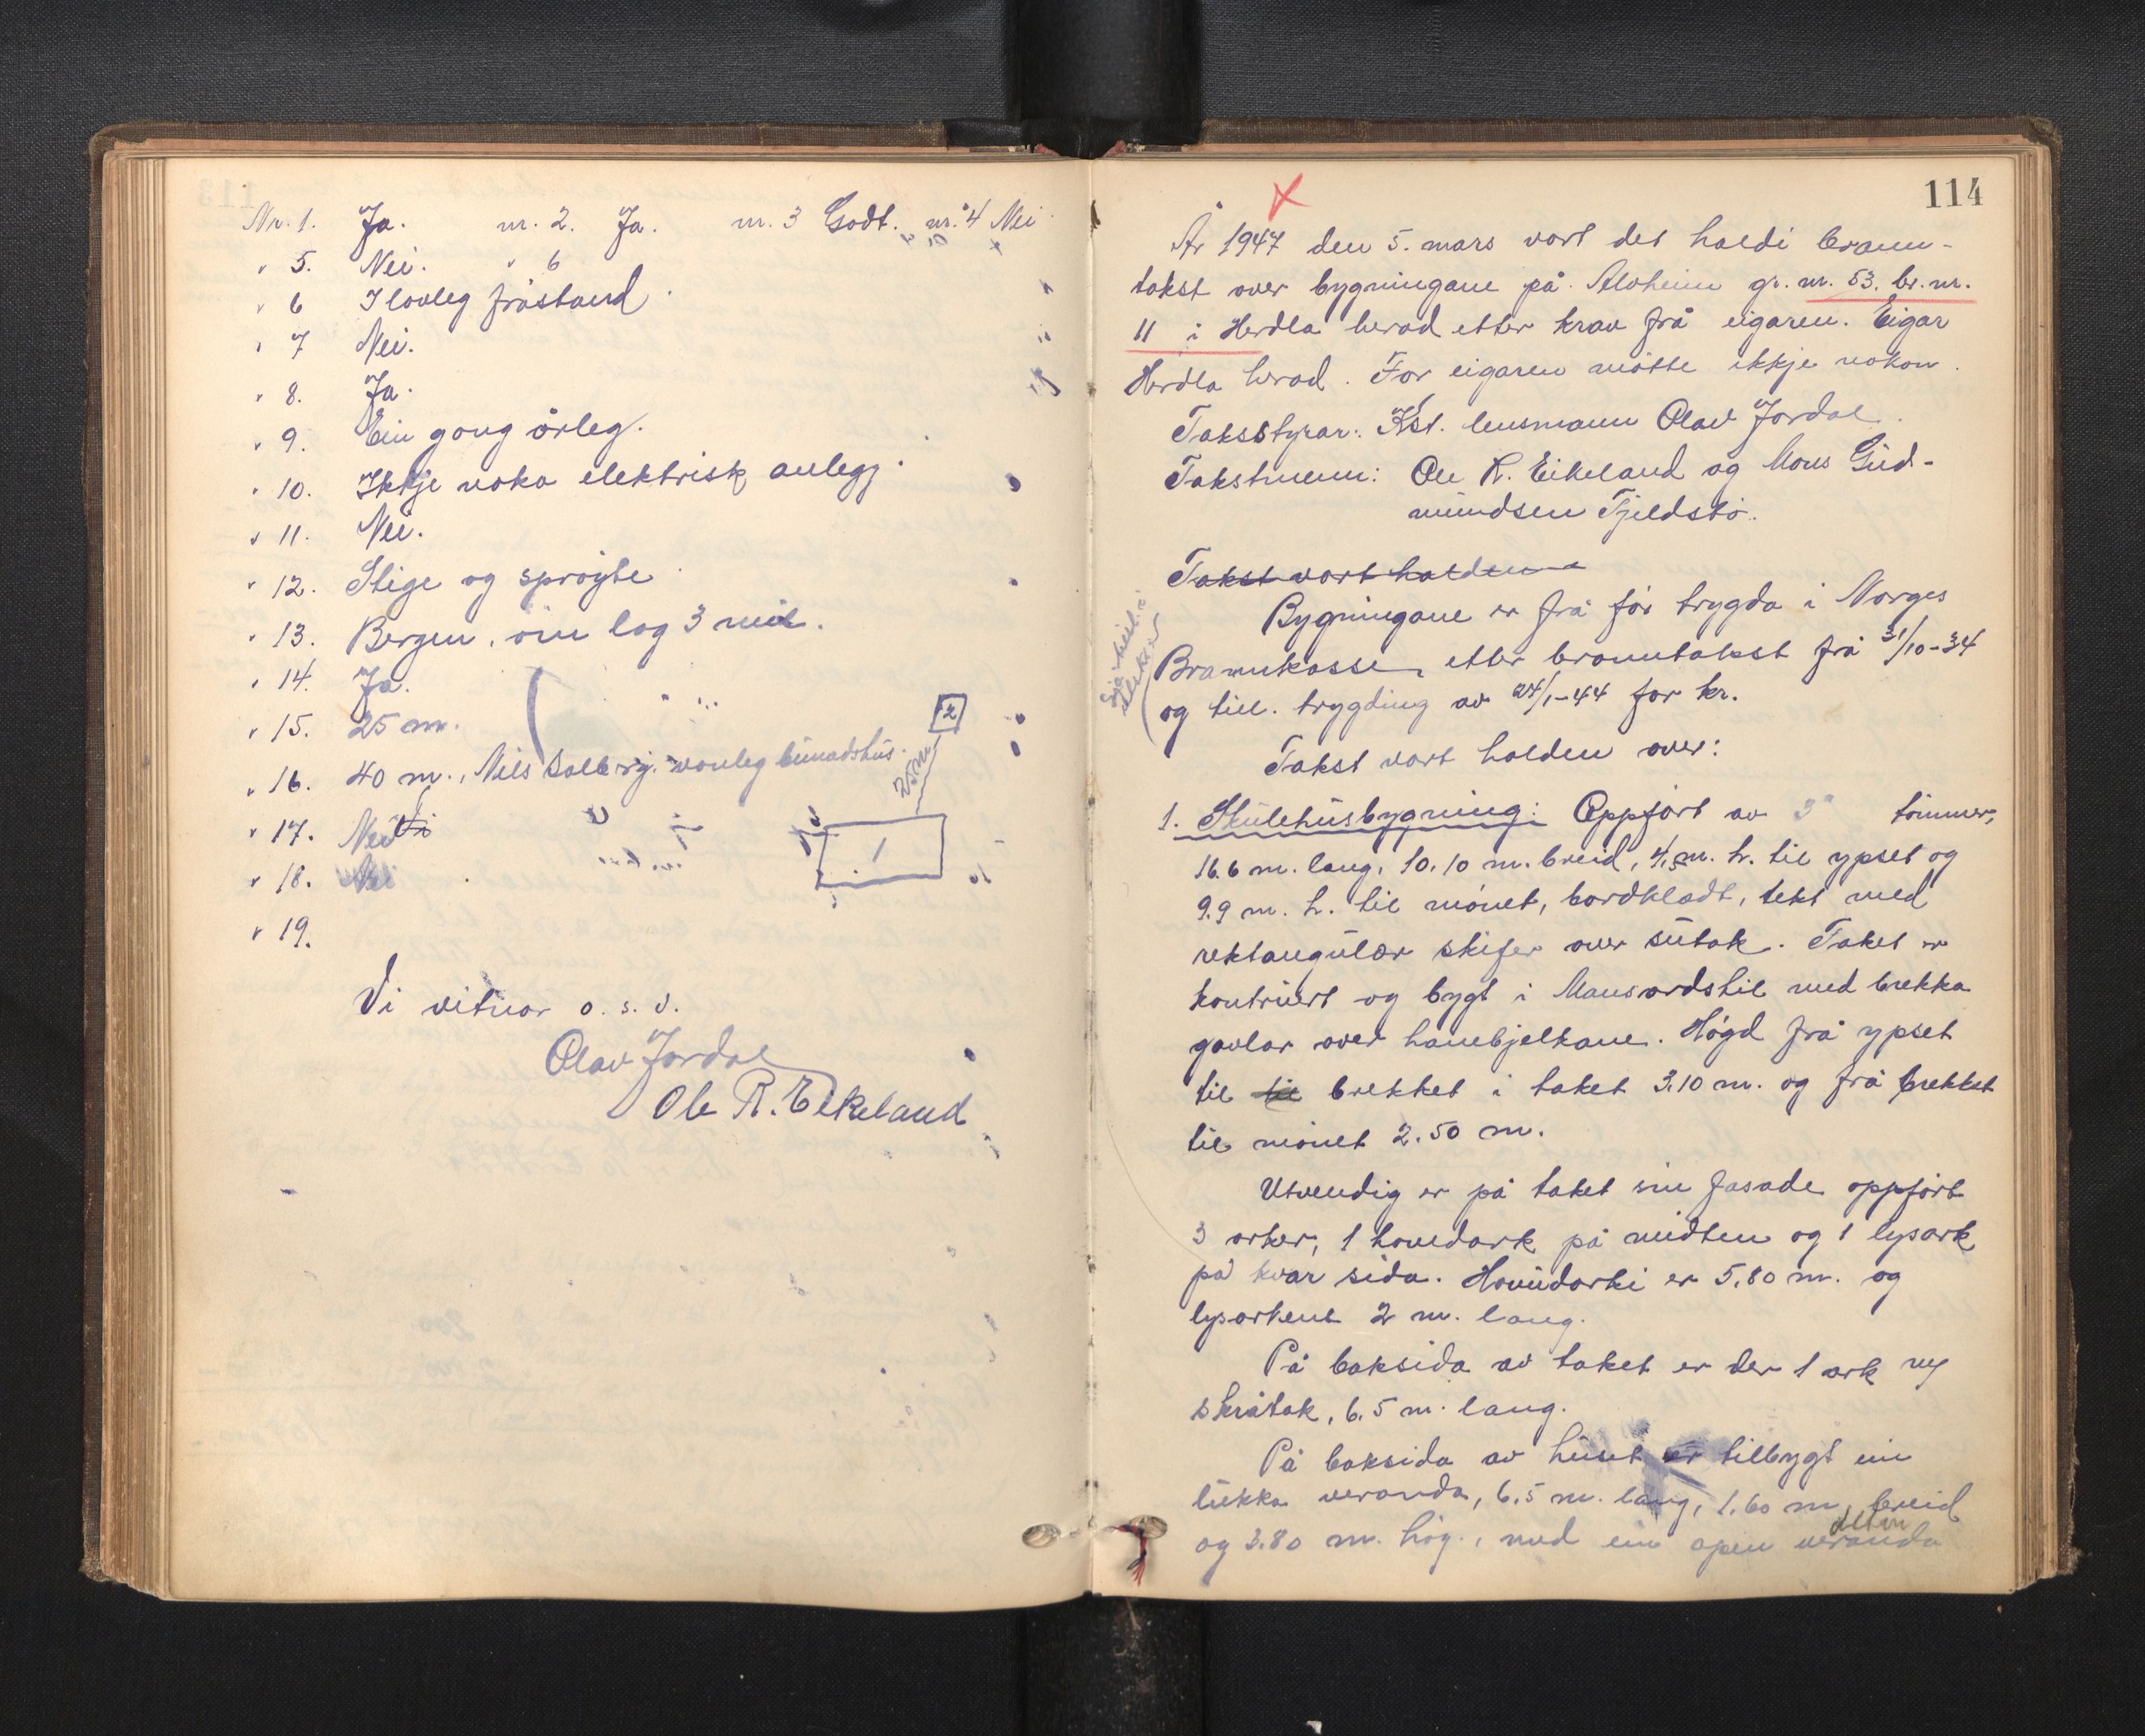 Nr. 1. Ja. nr. 2. Ja. nr. 3 Godt. nr. 4 Nei
" 5. Nei. " 6
" 6 I lovleg fråstand.
" 7 Nei.
" 8. Ja.
" 9. Ein gong årleg.
" 10. Ikkje noko elektrisk anlegg.
" 11. Nei.
" 12. Stige og sprøyte
" 13. Bergen, om lag 3 mil.
" 14. Ja.
" 15. 25 m.
" 16. 40 m., Nils Solberg. vanleg bunadshus.
" 17. Nei
" 18. Nei
" 19.
2
25 m
1
Vi vitnar o. s. v.
Olav Jordal
Ole R. Eikeland
114
År 1947 den 5. mars vart det haldi brann-
takst over bygningane på gr. nr. 53. br. nr.
11 i Herdla herad etter krav frå eigaren. Eigar
Herdla herad. For eigaren møtte ikkje nokon.
Takststyrar: Kst. lensmann Olav Jordal.
Takstmenn: Ole R. Eikeland og Mons Gud-
mundsen Tjeldstø.
Takst vart halden
Bygningane er frå før trygda i Norges
Brannkasse, etter branntakst frå 31/10-34
og till. trygding av 24/1-44 for kr.
Takst vart halden over:
1. Skulehusbygning: Oppført av 3" tømmer,
16.6 m. lang, 10.10 m. breid, 4,5 m. h. til ypset og
9.9 m. h. til mønet, bordkledt, tekt med
rektangulær skifer over sutak. Taket er
kontruert og bygt i Mansardstil med brekka
gavlar over hanebjelkane. Høgd frå ypset
til til brekket i taket 3.10 m. og frå brekket
til mønet 2.50 m.
Utvendig er på taket sin fasade oppført
3 arker, 1 hovedark på midten og 1 lysark
på kvar sida. Hovudarki er 5.80 m. og
lysarkene 2 m. lang.
På baksida av taket er der 1 ark m/
skråtak, 6.5 m. lang.
På baksida av huset er tilbygt ein
lukka veranda, 6.5 m. lang, 1.60 m. breid
og 3.80 m. høg., med ein open veranda